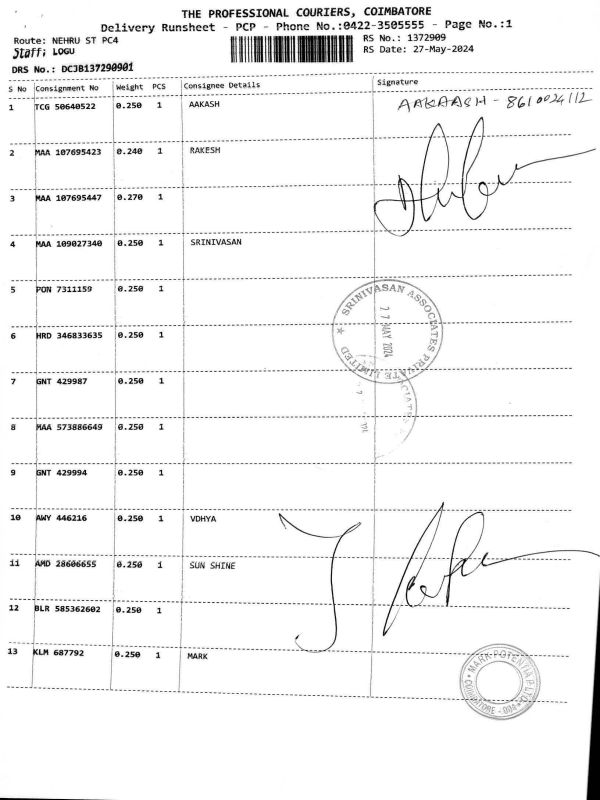 THE PROFESSIONAL COURIERS, COIMBATORE
Delivery Runsheet - PCP - Phone No.:0422-3505555 - Page No.:1
Route: NEHRU ST PC4
RS No.: 1372909
Staff; LOGU
RS Date: 27-May-2024
DRS No.: DCJB137290901
S No Consignment No Weight PCS Consignee Details Signature
1 TCG 50640522 0.250 1 AAKASH AAKAASH - 8610024112
2 MAA 107695423 0.240 1 RAKESH
3 MAA 107695447 0.270 1
4 MAA 109027340 0.250 1 SRINIVASAN
5 PON 7311159 0.250 1
SRINIVASAN ASSOCIATES PRIVATE LIMITED
27 MAY 2024
6 HRD 346833635 0.250 1
7 GNT 429987 0.250 1
8 MAA 573886649 0.250 1
9 GNT 429994 0.250 1
10 AWY 446216 0.250 1 VDHYA
11 AMD 28606655 0.250 1 SUN SHINE
12 BLR 585362602 0.250 1
13 KLM 687792 0.250 1 MARK
MARK POTENTIA P LTD
COIMBATORE